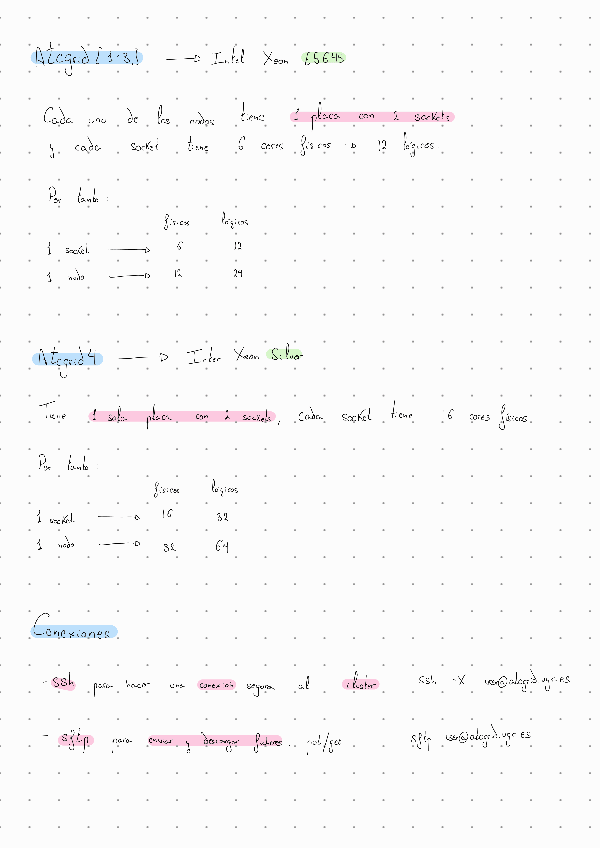 Atcgrid [1-3] → Intel Xeon E5645
Cada uno de los nodos tiene 1 placa con 2 sockets
y cada socket tiene 6 cores físicos → 12 lógicos
Por tanto:
físicos lógicos
1 socket → 6 12
1 nodo → 12 24
Atcgrid 4 → Inter Xeon Silver
Tiene 1 sola placa con 2 sockets, cada socket tiene 16 cores físicos.
Por tanto:
físicos lógicos
1 socket → 16 32
1 nodo → 32 64
Conexiones
- ssh para hacer una conexión segura al cluster ssh -X usr@atcgrid.ugr.es
- sftp para enviar y descargar ficheros. put/get sftp usr@atcgrid.ugr.es